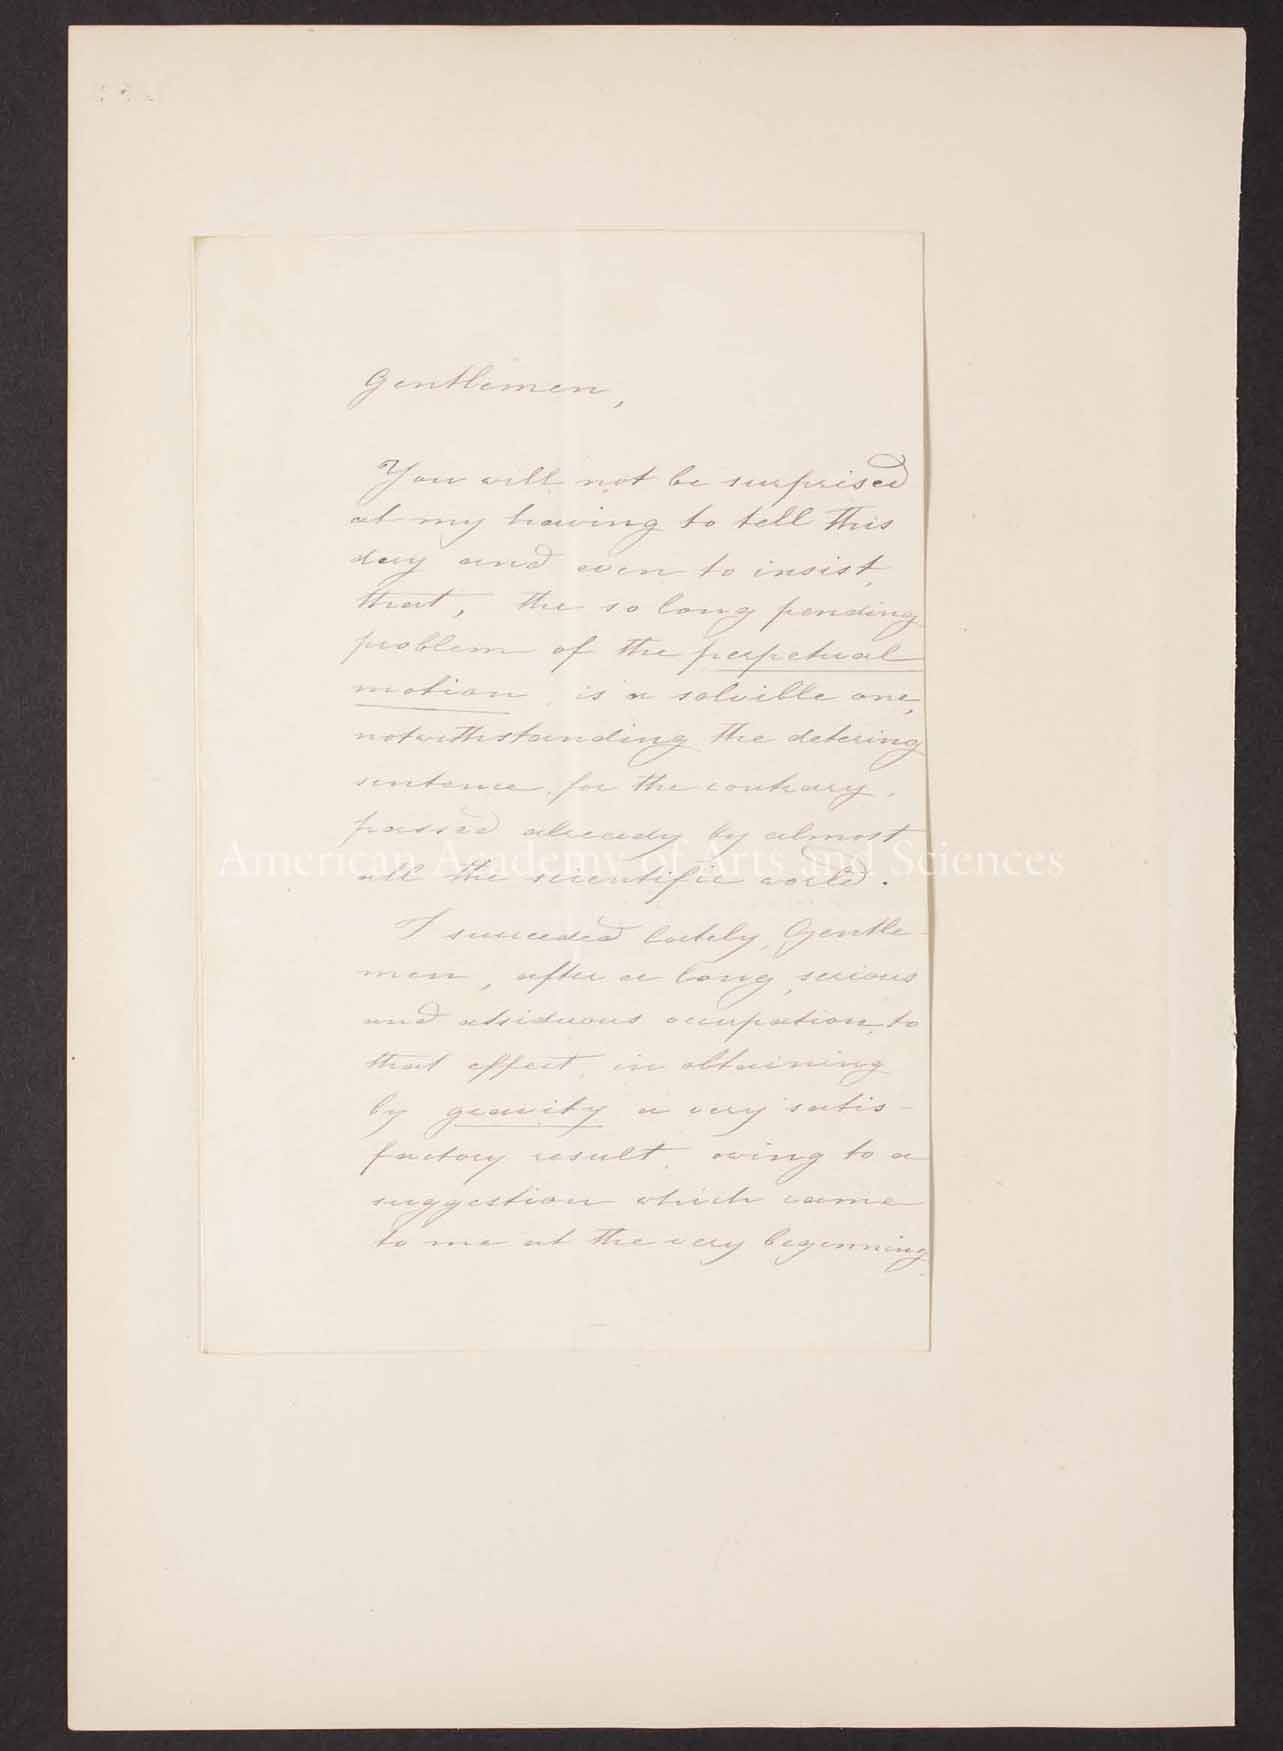 Gentlemen,
You will not be surprised
at my having to tell this
day and even to insist,
that, the so long pending
problem of the perpetual
motion, is a solvible one,
notwithstanding the detering
sentence, for the contrary,
passed already by almost
American Academy of Arts and Sciences
all the scientific world.
I succeeded lately, Gentle-
men, after a long, serious
and assiduous occupation, to
that effect, in obtaining
by gravity a very satis-
factory result, owing to a
suggestion which came
to me at the very beginning